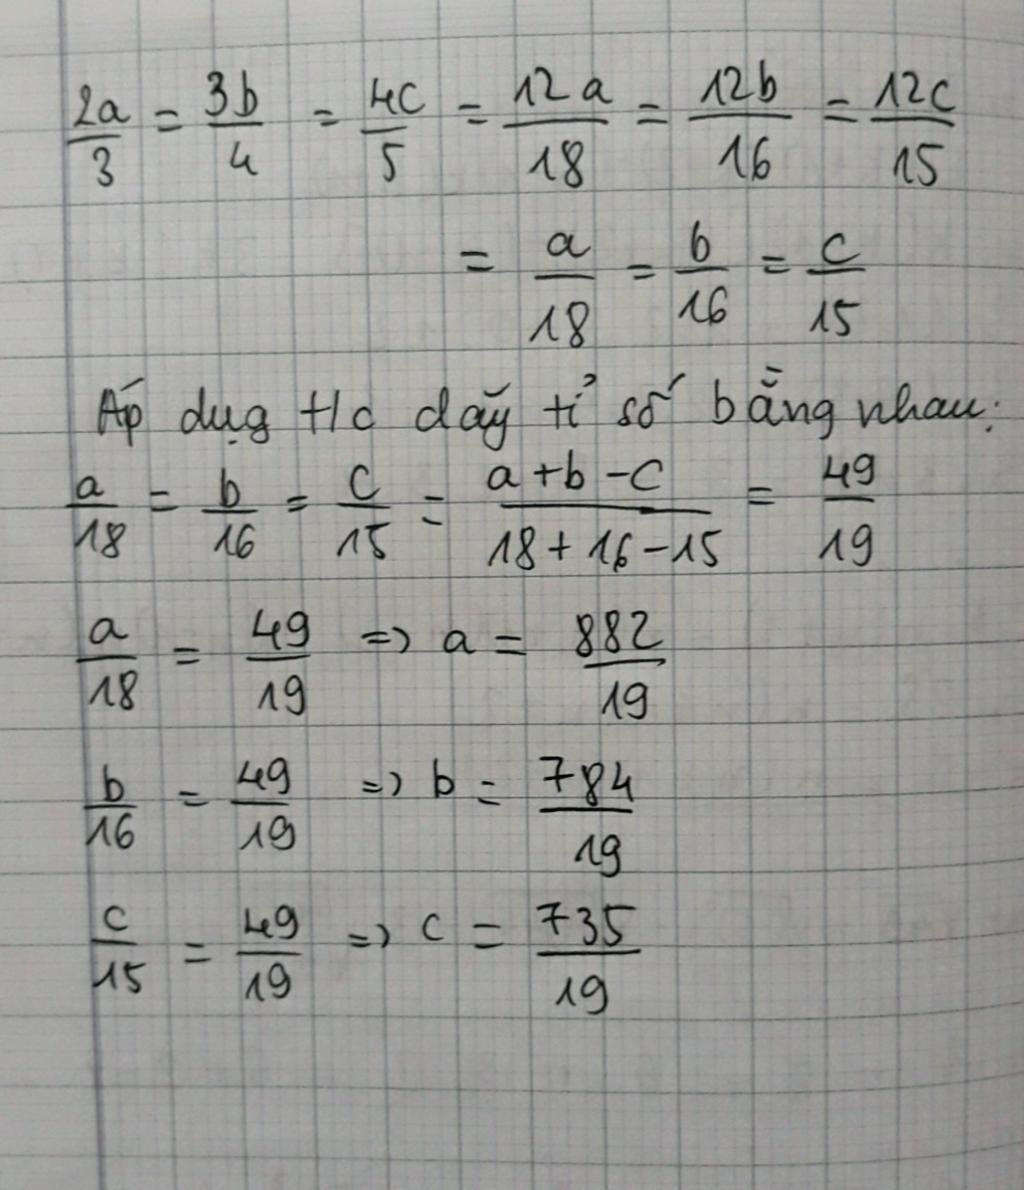 2a/3 = 3b/4 = 4c/5 = 12a/18 = 12b/16 = 12c/15
= a/18 = b/16 = c/15
Áp dụg t/c dãy tỉ số bằng nhau:
a/18 = b/16 = c/15 = a+b-c/18+16-15 = 49/19
a/18 = 49/19 => a = 882/19
b/16 = 49/19 => b = 784/19
c/15 = 49/19 => c = 735/19